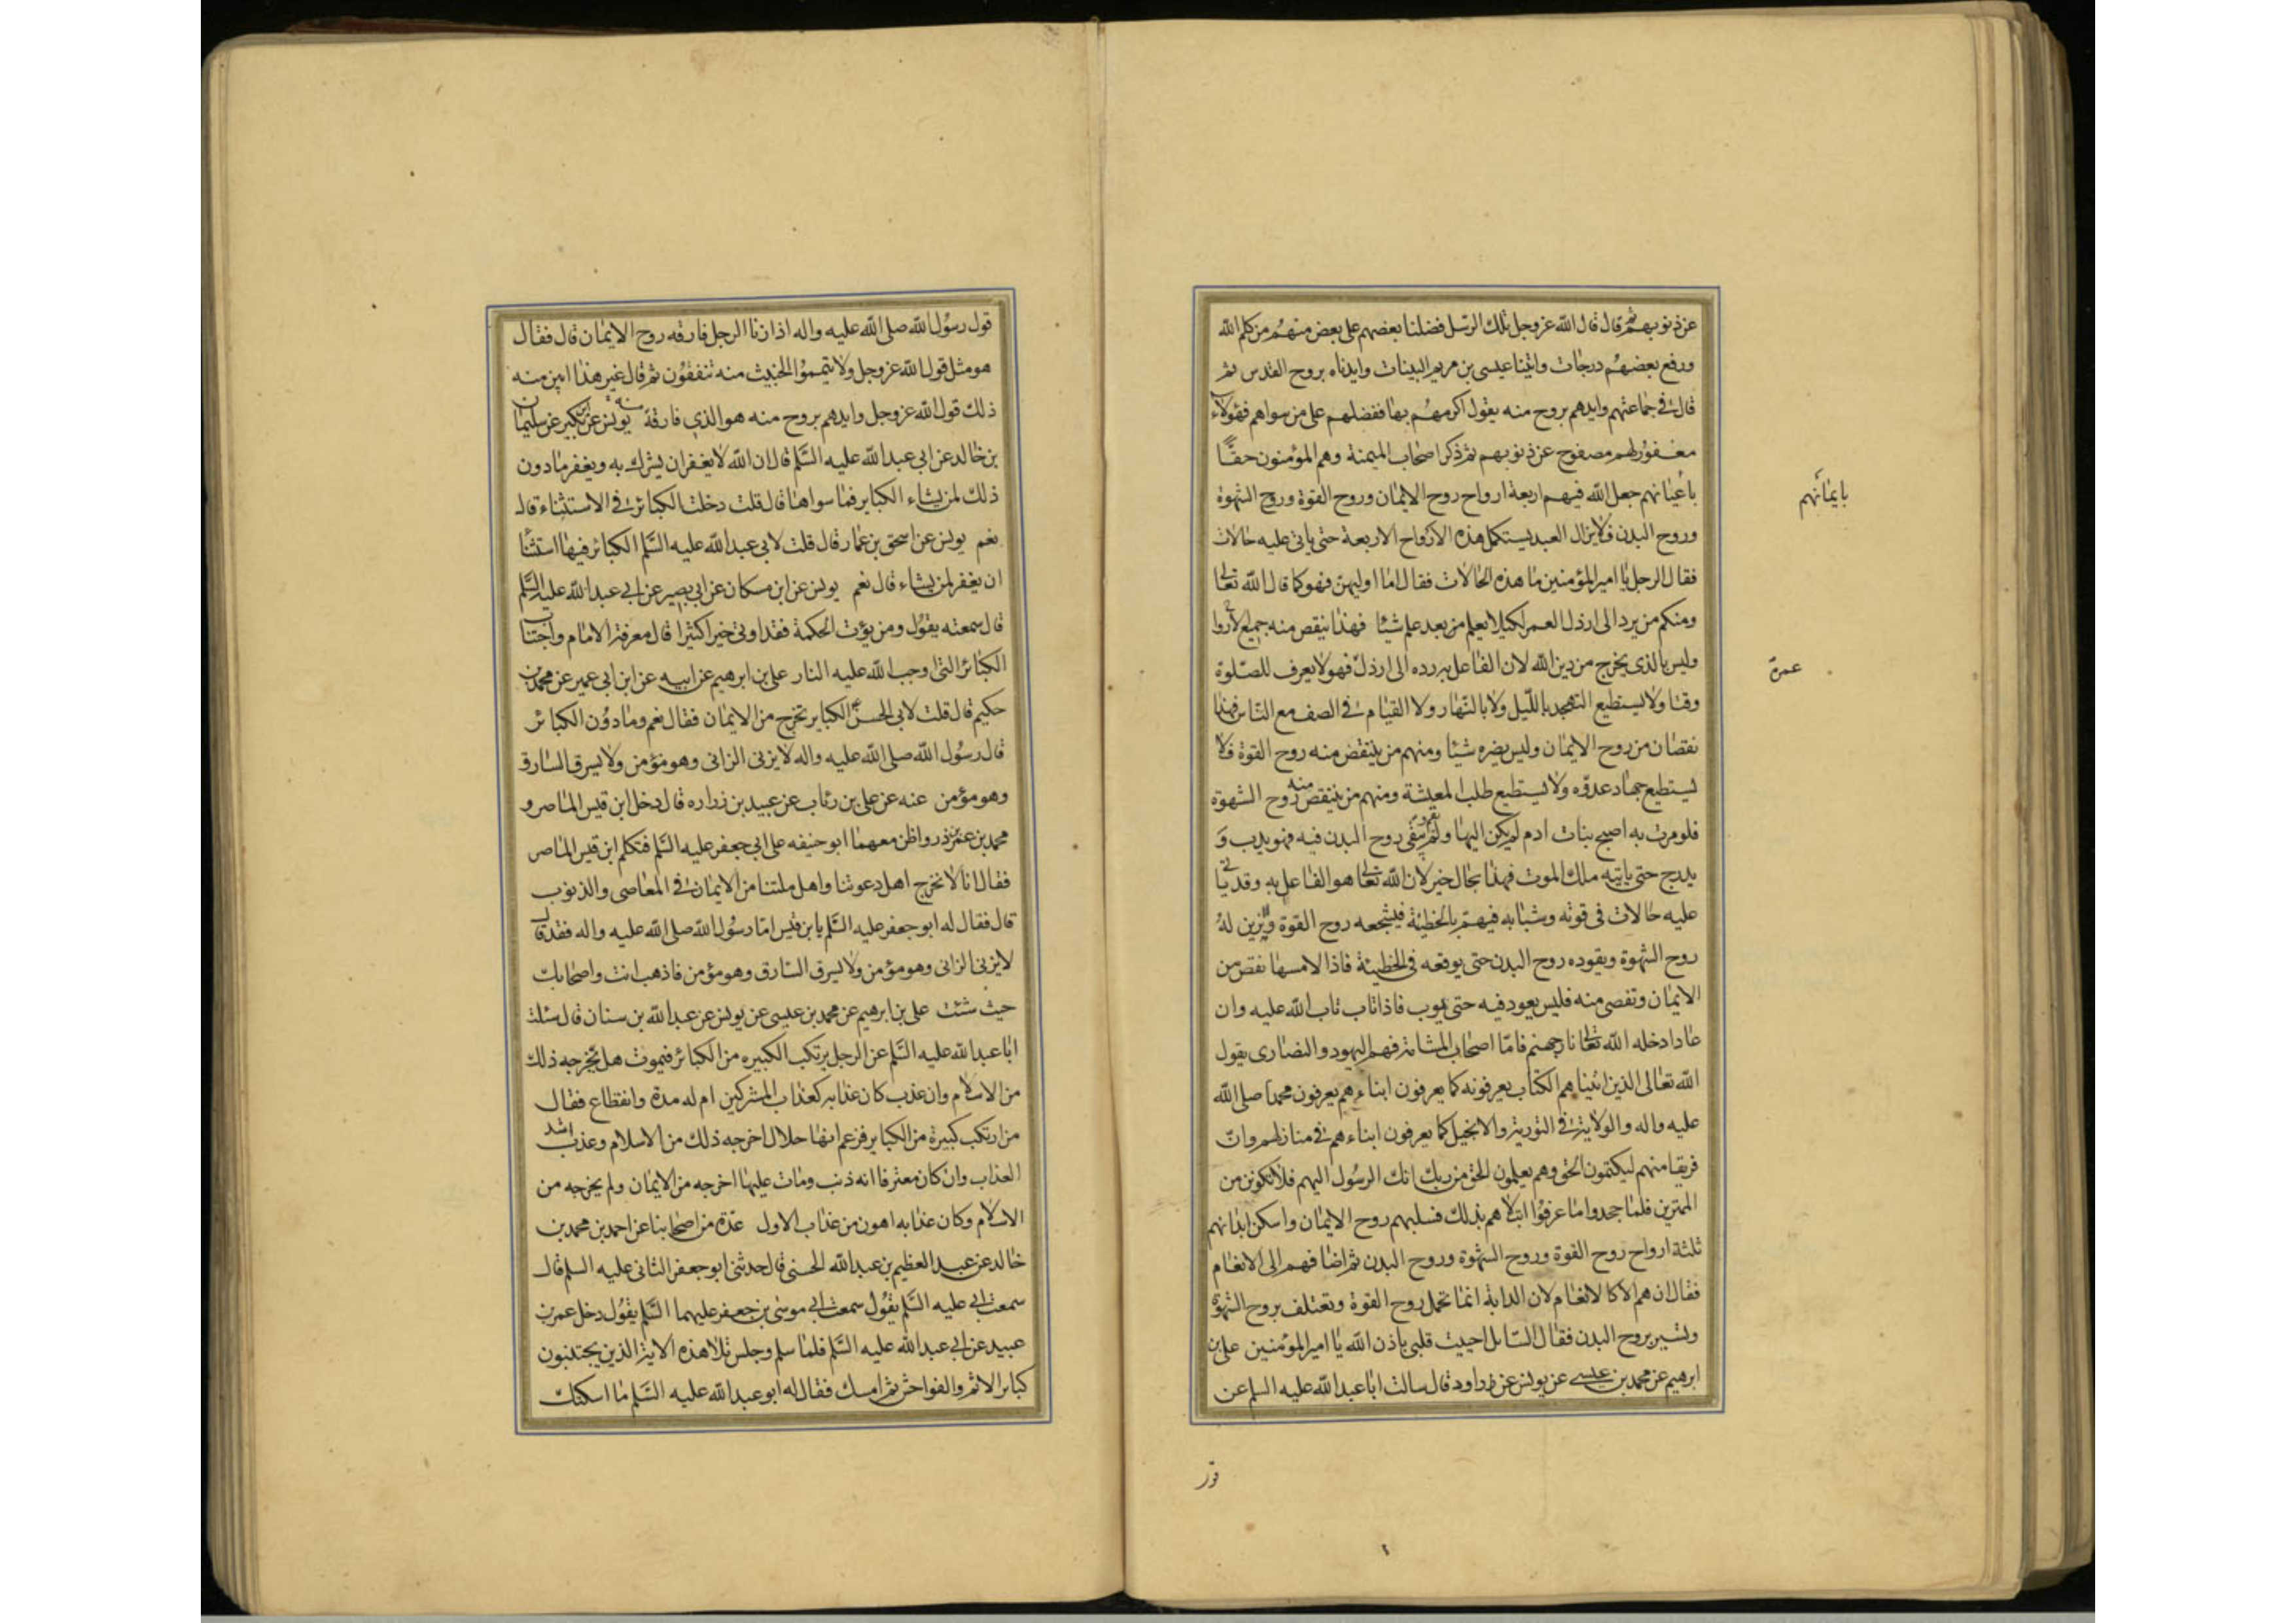 عن ذنوبهم ثم قال قال الله عز وجل تلك الرسل فضلنا بعضهم على بعض منهم من كلم الله
ورفع بعضهم درجات واتينا عيسى بن مريم البينات وايدناه بروح القدس ثم
قال في جماعتهم وايدهم بروح منه يقول اكرمهم بها ففضلهم على من سواهم فهؤلاء
مغفور لهم مصفوح عن ذنوبهم ثم ذكر اصحاب الميمنة وهم المؤمنون حقّا
باعيانهم جعل الله فيهم اربعة ارواح روح الايمان وروح القوة وروح الشهوة
بايمانهم
وروح البدن فلا يزال العبد يستكمل هذه الارواح الاربعة حتى ياتى عليه حالات
فقال الرجل يا امير المؤمنين ما هذه الحالات فقال اما اوليهن فهو كما قال الله تعالى
ومنكم من يرد الى ارذل العمر لكيلا يعلم من بعد علم شيئا فهذا ينقص منه جميع الارواح
وليس بالذى يخرج من دين الله لان الفاعل به رده الى ارذل فهو لا يعرف للصلوة
عمره
وقتا ولا يستطيع التهجد بالليل ولا بالنهار ولا القيام في الصف مع الناس فهذا
نقصان من روح الايمان وليس يضره شيئا ومنهم من ينتقص منه روح القوة فلا
يستطيع جهاد عدوه ولا يستطيع طلب المعيشة ومنهم من ينتقص منه روح الشهوة
فلو مرت به اصبح بنات ادم لم يكن اليها ولم يقم وتبقى روح البدن فيه فهو يدب و
يدرج حتى ياتيه ملك الموت فهذا بحال خير لان الله تعالى هو الفاعل به وقد ياتى
عليه حالات فى قوته وشبابه فيهم بالخطيئة فيشجعه روح القوة ويزين له
روح الشهوة ويقوده روح البدن حتى يوقعه فى الخطيئة فاذا لامسها نقص من
الايمان وتفصى منه فليس يعود فيه حتى يتوب فاذا تاب تاب الله عليه وان
عاد ادخله الله تعالى نار جهنم فامّا اصحاب المشامة فهم اليهود والنصارى يقول
الله تعالى الذين اتيناهم الكتاب يعرفونه كما يعرفون ابناءهم يعرفون محمدا صلى الله
عليه واله والولاية في التورية والانجيل كما يعرفون ابناءهم في منازلهم وان
فريقا منهم ليكتمون الحق وهم يعلمون الحق من ربك انك الرسول اليهم فلا تكونن من
الممترين فلما جحدوا ما عرفوا ابتلاهم بذلك فسلبهم روح الايمان واسكن ابدانهم
ثلثة ارواح روح القوة وروح الشهوة وروح البدن ثم اضافهم الى الانعام
فقال ان هم الا كالانعام لان الدابة انما تحمل بروح القوة وتعتلف بروح الشهوة
وتسير بروح البدن فقال السائل احييت قلبى باذن الله يا امير المؤمنين على بن
ابرهيم عن محمد بن عيسى عن يونس عن داود قال سالت ابا عبد الله عليه السلم عن
قول رسول الله صلى الله عليه واله اذا زنا الرجل فارقه روح الايمان قال فقال
هو مثل قول الله عز وجل ولا تيمموا الخبيث منه تنفقون ثم قال غير هذا ابين منه
ذلك قول الله عز وجل وايدهم بروح منه هو الذي فارقه يونس عن ابن بكير عن سليمان
بن خالد عن ابي عبد الله عليه السّلم قال ان الله لا يغفر ان يشرك به ويغفر ما دون
ذلك لمن يشاء الكباير فما سواها قال قلت دخلت الكبائر في الاستثناء قال
نعم يونس عن اسحق بن عمار قال قلت لابي عبد الله عليه السّلم الكبائر فيها استثنا
ان يغفر لمن يشاء قال نعم يونس عن ابن مسكان عن ابي بصير عن ابي عبد الله عليه السّلم
قال سمعته يقول ومن يؤت الحكمة فقد اوتي خيرا كثيرا قال معرفة الامام واجتناب
الكبائر التى اوجب الله عليه النار على بن ابرهيم عن ابيه عن ابن ابي عمير عن محمد بن
حكيم قال قلت لابي الحسن ع الكباير تخرج من الايمان فقال نعم وما دون الكبائر
قال رسول الله صلى الله عليه واله لا يزنى الزانى وهو مؤمن ولا يسرق السارق
وهو مؤمن عنه عن على بن رئاب عن عبيد بن زراره قال دخل ابن قيس الماصر و
محمد بن عمر بن ذر واظن معهما ابو حنيفه على ابي جعفر عليه السّلم فتكلم ابن قيس الماصر
فقال انا لا نخرج اهل دعوتنا واهل ملتنا من الايمان في المعاصى والذنوب
قال فقال له ابو جعفر عليه السّلم يابن قيس امّا رسول الله صلى الله عليه واله فقد قال
لا يزنى الزانى وهو مؤمن ولا يسرق السّارق وهو مؤمن فاذهب انت واصحابك
حيث شئت على بن ابرهيم عن محمد بن عيسى عن يونس عن عبد الله بن سنان قال سئلت
ابا عبد الله عليه السّلم عن الرجل يرتكب الكبيره من الكبائر فيموت هل يخرجه ذلك
من الاسلام وان عذب كان عذابه كعذاب المشركين ام له مدة وانقطاع فقال
من ارتكب كبيرة من الكباير فزعم انها حلال اخرجه ذلك من الاسلام وعذب اشد
العذاب وان كان معترفا انه ذنب ومات عليها اخرجه من الايمان ولم يخرجه من
الاسلام وكان عذابه اهون من عذاب الاول عدة من اصحابنا عن احمد بن محمد بن
خالد عن عبد العظيم بن عبد الله الحسنى قال حدثنى ابو جعفر الثانى عليه السلم قال
سمعت ابي عليه السّلم يقول سمعت ابي موسى بن جعفر عليهما السّلم يقول دخل عمر بن
عبيد عن ابي عبد الله عليه السّلم فلما سلم وجلس تلا هذه الاية الذين يجتنبون
كبائر الاثم والفواحش ثم امسك فقال له ابو عبد الله عليه السّلم ما اسكتك